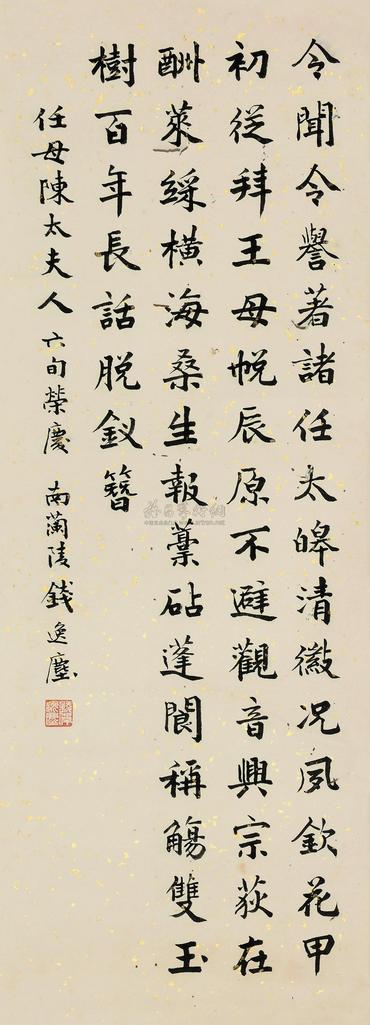 令聞令譽著諸任太皞清徽况夙欽花甲
初從拜王母帨辰原不避觀音興宗荻在
酬萊綵橫海桑生報藁砧蓬閬稱觴雙玉
樹百年長話脱釵簪
任母陳太夫人六旬榮慶 南蘭陵錢逸塵